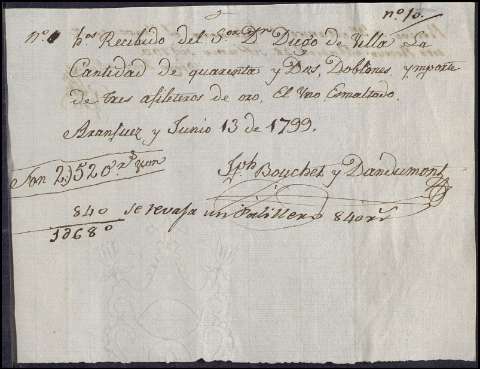 nº 10.
nº 1 hos Recibido del Sor Dn Diego de Villa La
Cantidad de quarenta y Dos, Doblones ymporte
de tres afileteros de oro, El Uno Esmaltado.
Aranjuez y Junio 13 de 1799.
Son 2)520 rs von
Jph Bouchet y Dandumont
840 se revaja un Palillero 840 rs
1)680